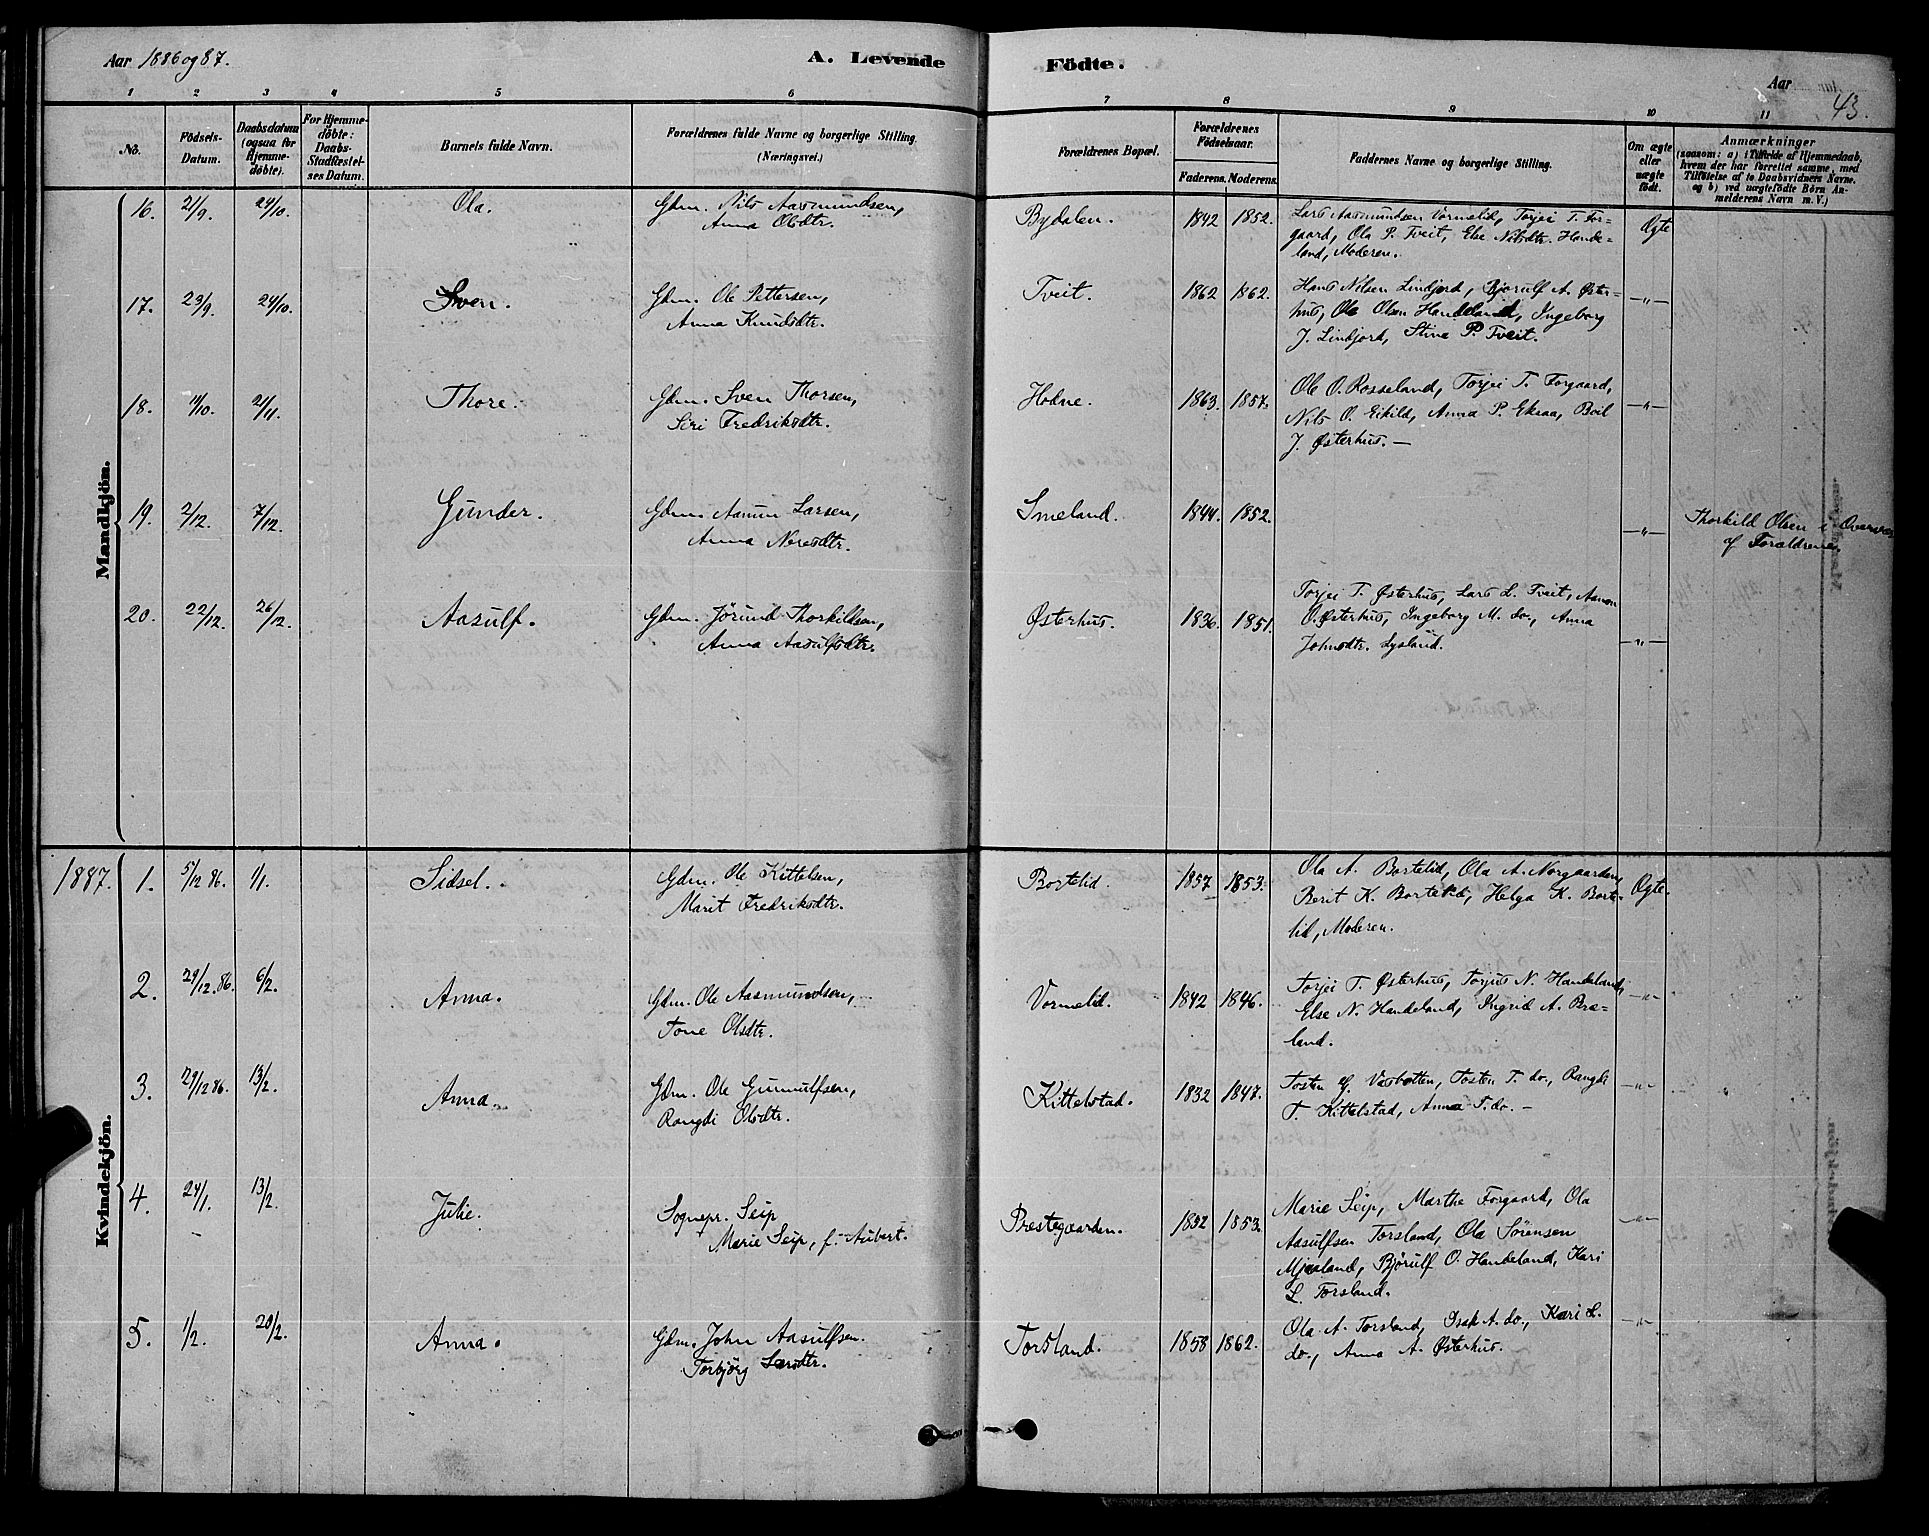 Aar 1886 og 87. A. Levende Födte. Aar 43.
1 2 3 4 5 6 7 8 9 10 11
No. Födsels-Datum. Daabsdatum (ogsaa for Hjemmedöbte). For Hjemmedöbte: Daabs-Stadfæstelses Datum. Barnets fulde Navn. Forældrenes fulde Navne og borgerlige Stilling. (Næringsvei.) Forældrenes Bopæl. Forældrenes Födselsaar. Faderens. Moderens. Faddernes Navne og borgerlige Stilling. Om ægte eller uægte födt. Anmærkninger (saasom: a) i Tilfælde af Hjemmedaab, hvem der har forrettet samme, med Tilföielse af to Daabsvidners Navne. og b) ved uægtefödte Börn Anmelderens Navn m. V.)
Mandkjön.
16. 21/9. 24/10. Ola. Gdm. Nils Aasmundsen, Bydalen. 1842 1852. Lars Aasmundsen Vormelid, Torjei T. For- Ægte
Anna Olsdtr. gaard, Ola P. Tveit, Else Nilsdtr. Hande-
land, Moderen.
17. 23/9. 24/10. Sven. Gdm. Ole Pettersen, Tveit. 1862 1862. Hans Nilsen Lindjord, Bjorulf A. Øster- —"—
Anna Knudsdtr. hus, Ole Olsen Handeland, Ingeborg
J. Lindjord, Stina P. Tveit.
18. 11/10. 21/11. Thore. Gdm. Sven Thorsen, Hodne. 1863. 1857. Ole O. Rosseland, Torjei T. Forgaard, —"—
Siri Fredriksdtr. Nils O. Eikild, Anna P. Eksaa, Boil
J. Østerhus. —
19. 2/12. 7/12. Gunder. Gdm. Aanun Larsen, Smeland. 1844. 1852. —"— Thorkild Olsen i
Anna Neresdtr. af Forældrene.
20. 22/12. 26/12. Aasulf. Gdm. Jörund Thorkildsen, Østerhus. 1836. 1851. Torjei T. Østerhus, Lars L. Tveit, Aanon
Anna Aasulfsdtr. O. Østerhus, Ingeborg M. do., Anna
Johnsdtr. Lysland. —"—
Kvindekjön.
1887. 1. 5/12 86. 1/1. Sidsel. Gdm. Ole Kittelsen, Bortelid. 1857 1853. Ola A. Bortelid, Ola A. Norgaarden, Ægte.
Marit Fredriksdtr. Berit K. Bortelid, Helga K. Borte-
lid, Moderen.
2. 29/12. 86. 6/2. Anna. Gdm. Ole Aasmundsen, Vormelid. 1842 1846. Torjei T. Østerhus, Torjus N. Handeland, —"—
Tone Olsdtr. Else N. Handeland, Ingrid A. Bre-
land.
3. 29/12 86. 13/2. Anna. Gdm. Ole Gunnulfsen, Kittelstad. 1832 1847. Tosten G. Vasbotten, Tosten T. do., Rangdi —"—
Rangdi Olsdtr. T. Kittelstad, Anna T. do. —
4. 24/1. 13/2. Julie. Sognepr. Seip Prestegaarden. 1852 1853. Marie Seip, Marthe Forgaard, Ola —"—
Marie Seip, f. Aubert. Aasulfsen Torsland, Ola Sörensen
Mjaaland, Björulf O. Handeland, Kari
L. Torsland.
5. 1/2. 20/2. Anna. Gdm. John Aasulfsen. Torsland. 1858 1862. Ola A. Torsland, Isak A. do., Kari L. —"—
Torbjörg Larsdtr. do., Anna A. Østerhus.